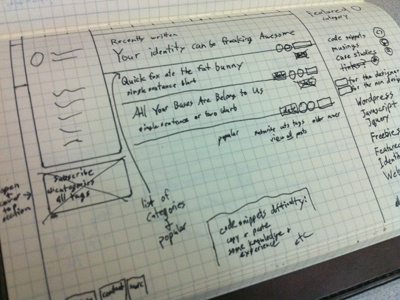 Recently written
Your identity can be freaking Awesome
Quick fox ate the fat bunny
single sentence blurb
All Your Bases Are Belong to Us
single sentence or two blurb
date
popular
older newer
view all posts
Featured
category
code snippets
musings
case studies
for the designer
for the
Wordpress
Javascript
Jquery
Freebies
Feature
Identi
Web
Subscribe
w/categories
all tags
list of
categories
popular
code snippets difficulty:
copy & paste
some knowledge &
experience
etc
contact